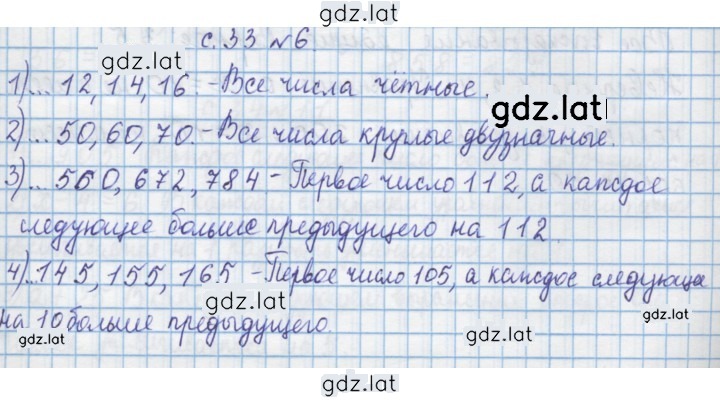 gdz.lat
с. 33 №6
1)... 12, 14, 16. - Все числа чётные.
gdz.lat
2)... 50, 60, 70. - Все числа круглые двузначные.
3)... 560, 672, 784 - Первое число 112, а каждое
gdz.lat gdz.lat
следующее больше предыдущего на 112.
4)... 145, 155, 165 - Первое число 105, а каждое следующа
gdz.lat
на 10 больше предыдущего.
gdz.lat gdz.lat
gdz.lat